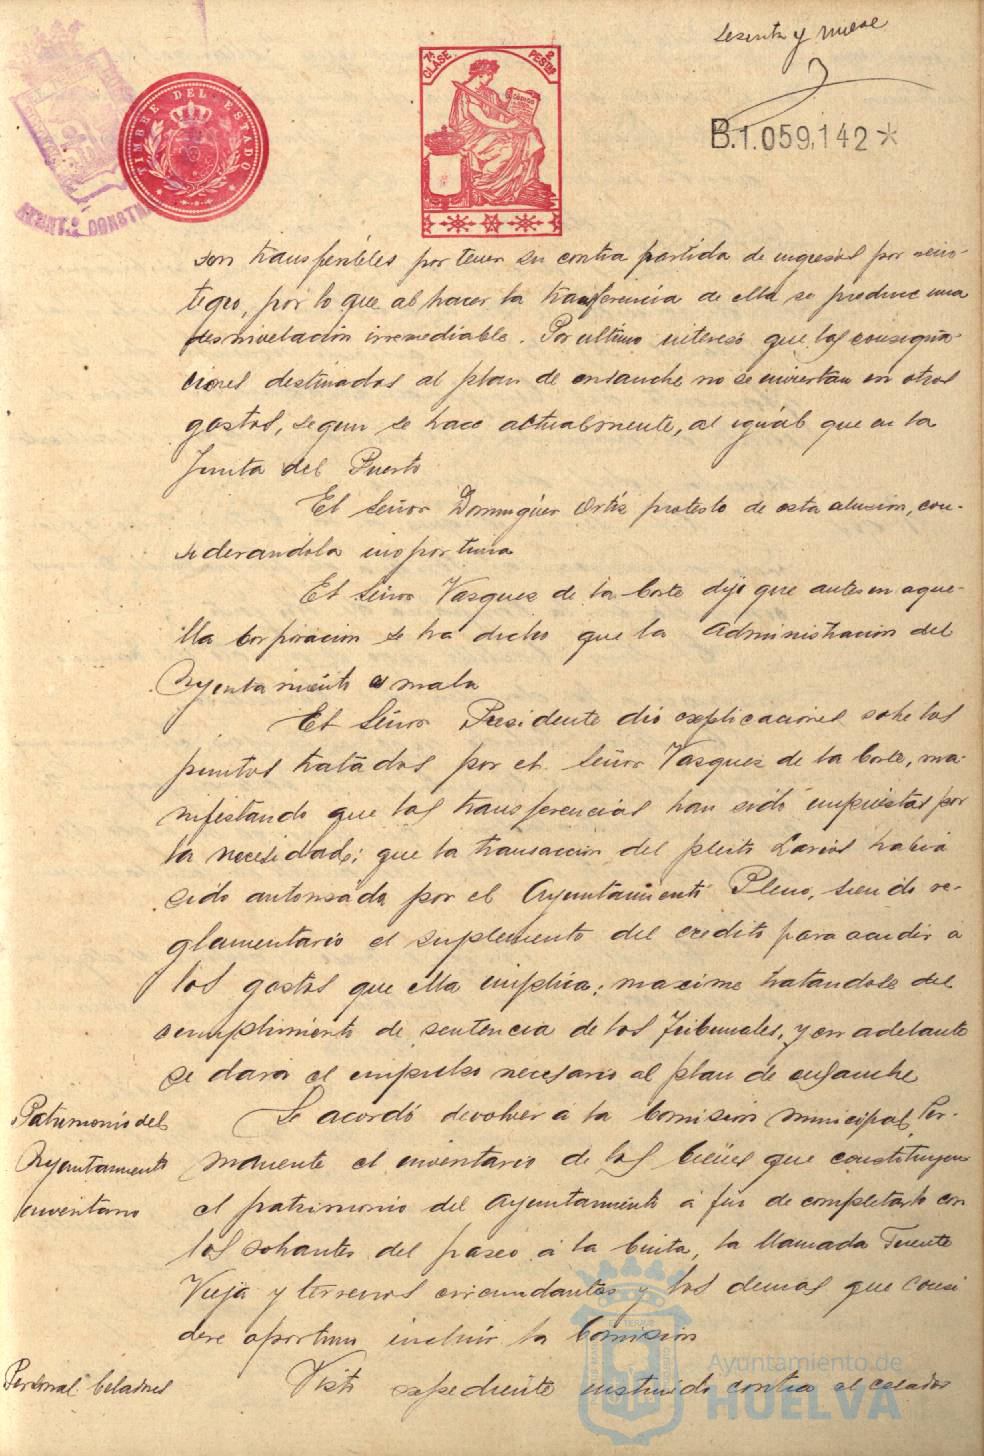 Sesenta y nueve
7ª CLASE 2 PESETAS
TIMBRE DEL ESTADO
AYUNT.º CONST
B.1.059,142*
son transferibles por tener su contra partida de ingresos por rein-
tegro, por lo que al hacer la transferencia de ella se produce una
desnivelación irremediable. Por ultimo intereso que las consigna-
ciones destinadas al plan de ensanche no se inviertan en otros
gastos, segun se hace actualmente, al igual que en la
Junta del Puerto
El Señor Dominguez Ortiz protesto de esta alusion, con-
siderandola inoportuna
El Señor Vasquez de la Corte dijo que antes en aque-
lla Corporacion se ha dicho que la administracion del
Ayuntamiento es mala
El Señor Presidente dio explicaciones sobre los
puntos tratados por el Señor Vasquez de la Corte, ma-
nifestando que las transferencias han sido impuestas por
la necesidad; que la transaccion del pleito Larios habia
sido autorizada por el Ayuntamiento Pleno, siendo re-
glamentario el suplemento del credito para acudir a
los gastos que ella implica; maxime tratandose del
cumplimiento de sentencia de los Tribunales, y en adelante
se dara el impulso necesario al plan de ensanche
Patrimonio del
Ayuntamiento
inventario
Se acordó devolver á la Comision municipal Per-
manente el inventario de los bienes que constituyen
el patrimonio del Ayuntamiento á fin de completarlo con
los sobrantes del paseo á la Cinta, la llamada Fuente
Vieja y terrenos circundantes y los demas que consi
dere oportuno incluir la Comision
Personal. Celadores
Visto expediente instruido contra el celador
Ayuntamiento de
HUELVA